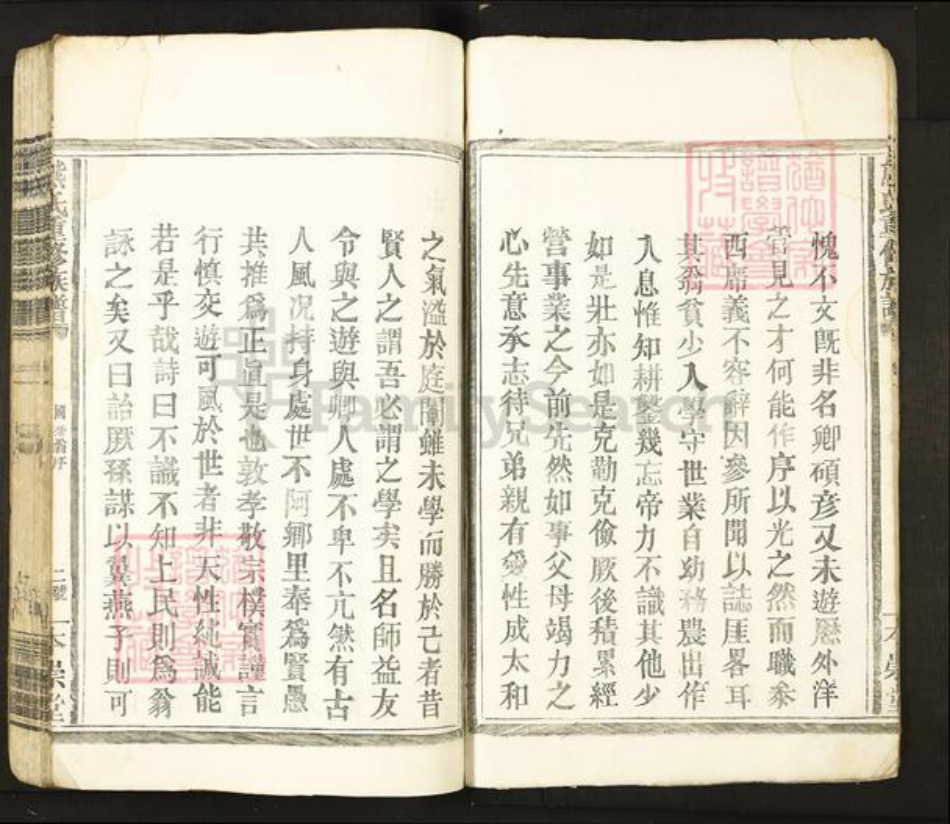 愧不文旣非名卿碩彥又未遊歷外洋
管見之才何能作序以光之然而職忝
西席義不容辭因參所聞以誌厓畧耳
其翁貧少入學守世業自幼務農出作
入息惟知耕鑿幾忘帝力不識其他少
如是壯亦如是克勤克儉厥後積累經
營事業之今前先然如事父母竭力之
心先意承志待兄弟親有愛性成太和
之氣溢於庭闈雖未學而勝於己者昔
賢人之謂吾必謂之學矣且名師益友
令與之遊與鄉人處不卑不亢然有古
人風况持身處世不阿鄉里奉爲賢愚
共推爲正直是也敦孝敬宗樸實謹言
行慎交遊可風於世者非天性純誠能
若是乎哉詩曰不識不知上民則爲翁
詠之矣又曰詒厥孫謀以翼燕子則可
熊氏重修族譜
二號
一本崇堂
FamilySearch